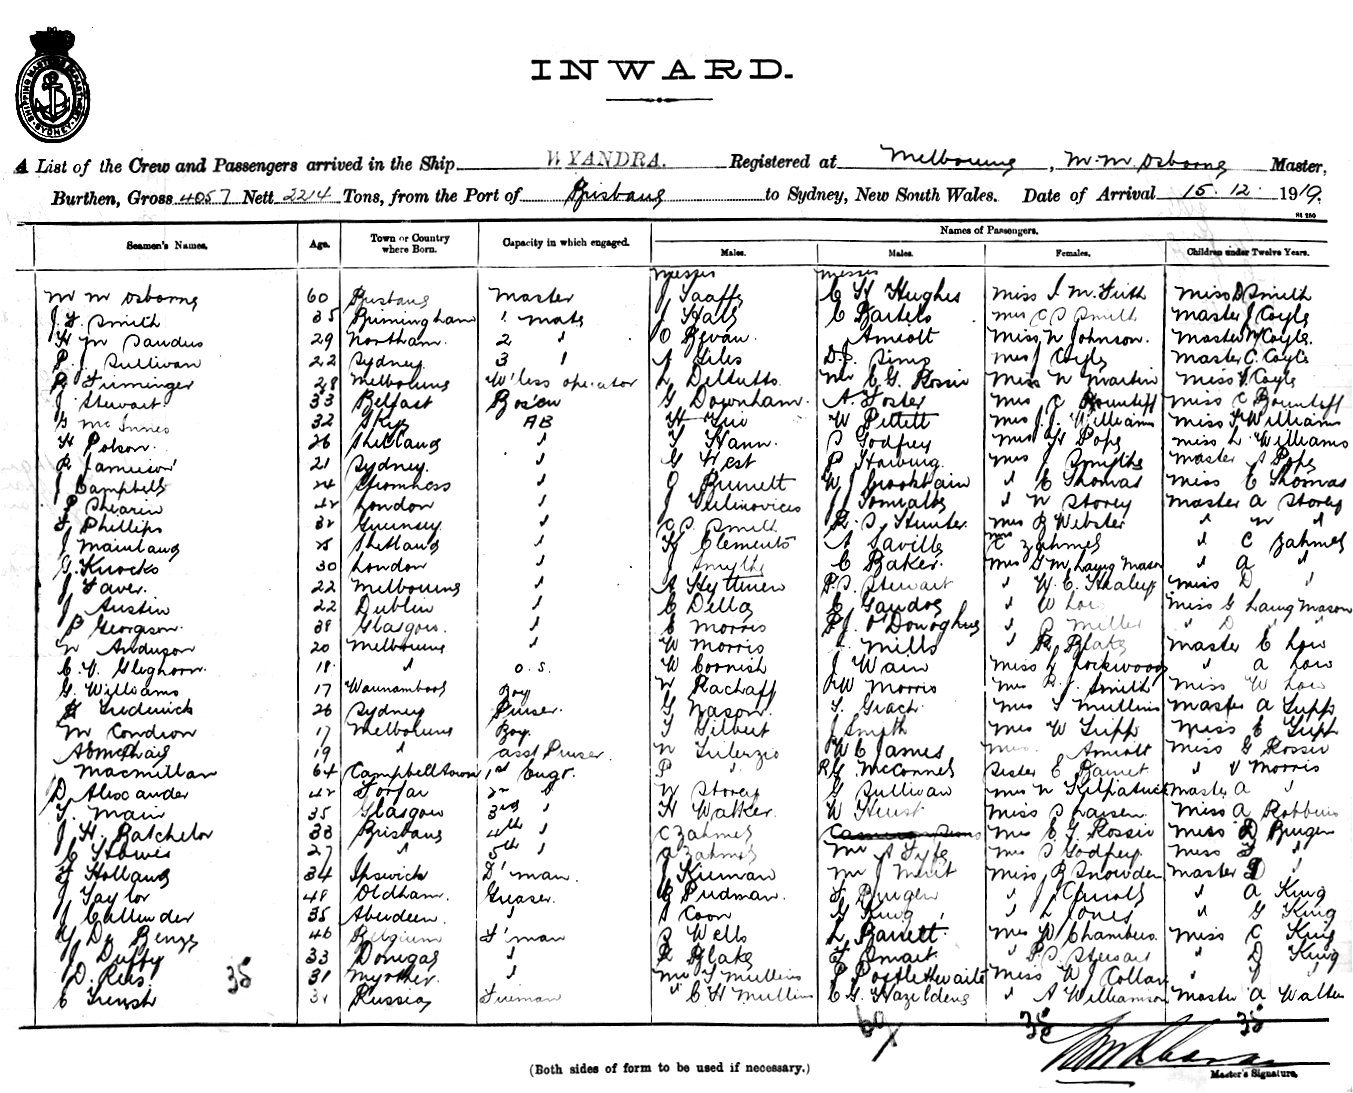 SHIPPING MASTER'S DEPARTMENT SYDNEY
INWARD.
A List of the Crew and Passengers arrived in the Ship WYANDRA. Registered at Melbourne, M. M. Osborne Master,
Burthen, Gross 4057 Nett 2214 Tons, from the Port of Brisbane to Sydney, New South Wales. Date of Arrival 15.12.1919.
St 250
Names of Passengers.
Seamen's Names. Age. Town or Country where Born. Capacity in which engaged. Males. Males. Females. Children under Twelve Years.
Messrs Messrs
M M Osborne 60 Brisbane Master J Saaffe C H Hughes Miss I. M. Frith Miss D Smith
J. F. Smith 35 Birmingham 1 mate J Hale C Bartels Mrs C S Smith Master J Coyle
H M Sandus 29 Northam 2 " O Bevan Amiott Miss N Johnson. Master M Coyle.
P. J. Sullivan 22 Sydney 3 " A Giles D.S. Sims Mrs J Coyle Master C. Coyle
Firminger 28 Melbourne W'less operator L Deltutto Mr C G. Rossiv Miss N Martin Miss V. Coyle
J Stewart 33 Belfast Bos'en G Downham. A Foster Mrs C Bountiff Miss C Bountiff
G McInnes 32 Skye AB W Pettett Mrs J. J. Williams Miss F Williams
H Polson. 26 Shetland " T Hann. S Godfrey Mrs H Pope Miss L Williams
R Jamieson 21 Sydney. " G West P Harwing. Mrs J Smythe Master A Pope
J Campbell 24 Stromness " J Burnett W J Brookbain " E Thomas Miss E Thomas
P Shearin 42 London " J J Tomialto " N Storey Master A Storey
F Phillips 32 Guernsey " C S Smith R. S. Hunter. Mrs B Webster " M "
J Mainland 25 Shetland " H Clements A Saville Mrs C Zahmel " C Zahmel
G. Knocks 30 London " J Smythe C Baker. Mrs D M. Laing Mason " A "
J Faver. 22 Melbourne " A Hyttinen P.S. Stewart " W. E. Healey Miss D "
J Austin 22 Dublin " C Della E Gandos " W Low Miss G Laing Mason
P Georgeson. 38 Glasgow. " E Morris P.J. O'Donoghue " S Miller " D "
N Anderson 20 Melbourne " W Morris J. Mills " R Blake Master E Low
C. V. Gleghorn. 18. " O.S. W Cornish J Wain Miss L Lockwood " A Low
G. Williams 17 Warrnambool Boy N Rachaff J W Morris Mrs R. J. Smith Miss W Low
H Frederick 26 Sydney Purser. G Nason. S. Grach Mrs S Mullins Master A Tripp
M Condron 17 Melbourne Boy. T Gilbert J Smyth Mrs W Tripp Miss E Tripp
A McPhail 19 " asst Purser. N W E James Mrs Amiott Miss G Rossiv
Macmillan 64 Campbelltown 1st Engr. P " R.G. McConnel Sister E Barnet " V Morris
D Alexander 42 Forfar 2nd " N Storey G Sullivan Mrs N Kilpatrick Master A "
T. Main 35 Glasgow 3rd " H Walker. W Hurst Miss S Larsen Miss A Robbins
J. H. Batchelor 33 Brisbane 4th " C Zahmel Mrs E. G. Rossiv Miss D Bingen
C Howes 27 " 5th " A Zahmel Mr A Fyfe Mrs S Godfrey. Miss "
F Holland 34 Ipswich D'man. J Kiernan Mr J Merit Miss B Snowden Master D "
J Taylor 48 Oldham. Greaser. G Pudman. F Bingen " J Quiols " A King
J Callender 35 Aberdeen. " S Coon G King " L Jones " G King
Y. De Benge 46 Belgium F'man P Wells L Barrett. Mrs W Chambers. Miss C King
J Duffy 33 Donegal " R Blake H Smart " P.S. Stewart " D King
D. Rees. 31 " Mr S Mullins P Postlethwaite Miss W J Collar "
C Trensh 31 Russia Fireman " C H Mullins C G. Hazeldene " A Williamson Master A Walter
35
69
35
35
Master's Signature.
(Both sides of form to be used if necessary.)